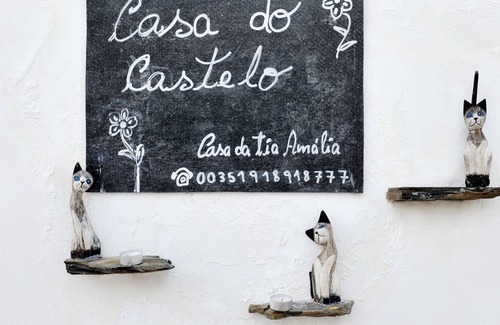 Casa do
Castelo
Casa da tia Amália
00351918918777